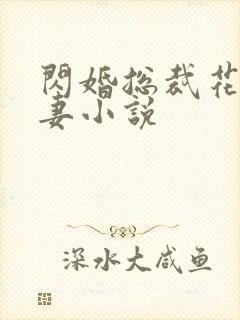 閃婚总裁花
妻小説
深水大咸鱼